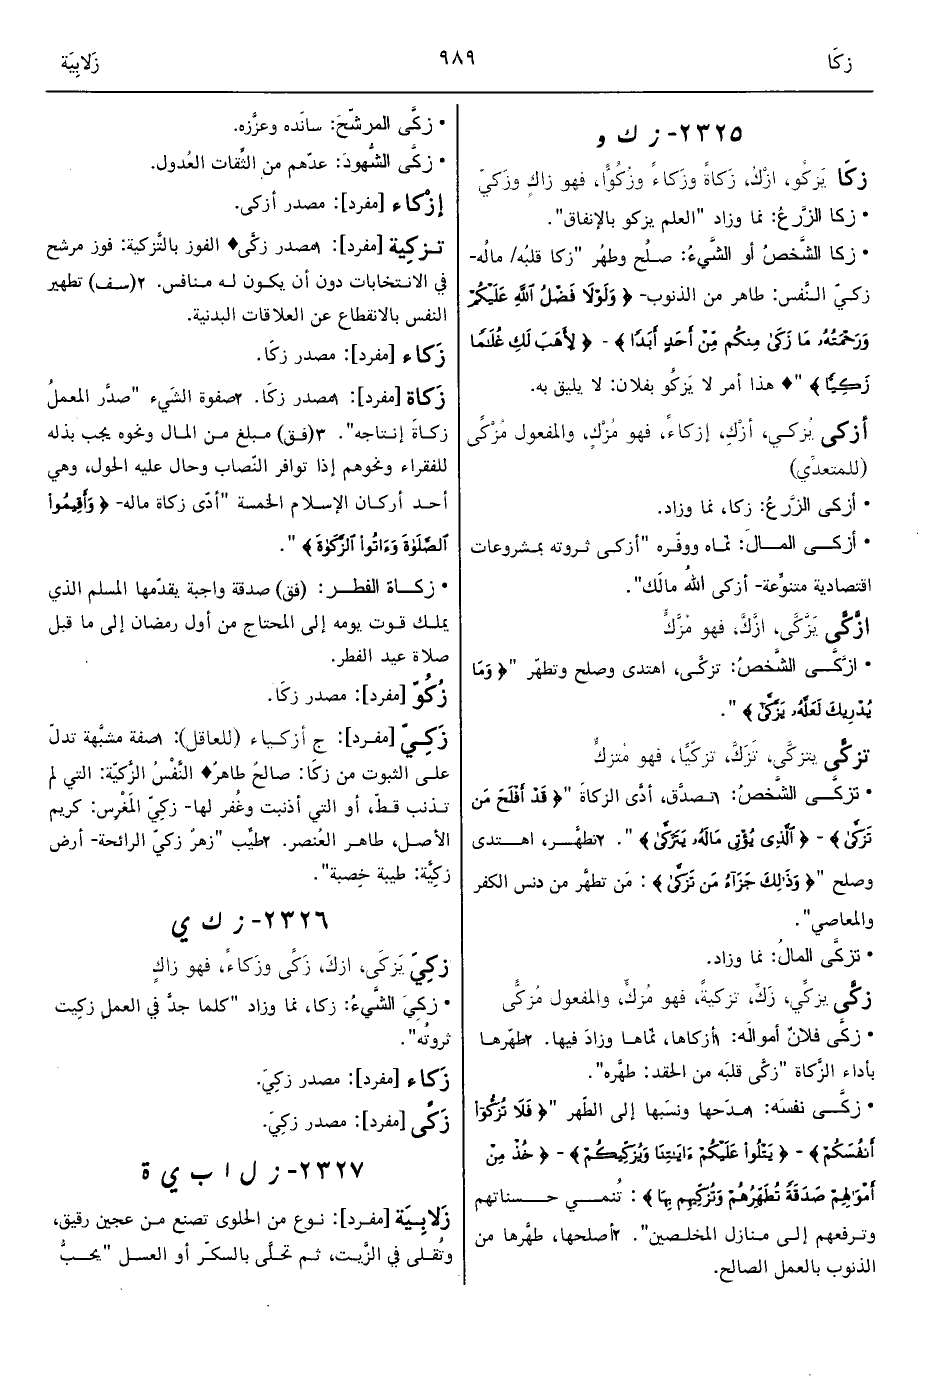 زكَا
٩٨٩
زَلابِيَة
٢٣٢٥- ز ك و
زكَا يَزكُو، ازْكُ، زَكاةً وزَكاءً وزُكُوًّا، فهو زاكٍ وزَكيّ
• زكا الزَّرعُ: نما وزاد "العلم يزكو بالإنفاق".
• زكا الشَّخصُ أو الشَّيءُ: صلُح وطهُر "زكا قلبُه/ مالُه-
زكيّ النَّفس: طاهر من الذنوب- ﴿ وَلَوْلَا فَضْلُ اللَّهِ عَلَيْكُمْ
وَرَحْمَتُهُ، مَا زَكَىٰ مِنكُم مِّنْ أَحَدٍ أَبَدًا ﴾ - ﴿ لِأَهَبَ لَكِ غُلَامًا
زَكِيًّا ﴾ "♦ هذا أمر لا يَزكُو بفلان: لا يليق به.
أزكى يُزكي، أزْكِ، إزكاءً، فهو مُزْكٍ، والمفعول مُزْكًى
(للمتعدِّي)
• أزكى الزَّرعُ: زكا، نما وزاد.
• أزكى المالَ: نمّاه ووفّره "أزكى ثروته بمشروعات
اقتصادية متنوِّعة- أزكى اللهُ مالَك".
ازَّكَّى يَزَّكَّى، ازَّكَّ، فهو مُزَّكٍّ
• ازَّكَّى الشَّخصُ: تزكَّى، اهتدى وصلح وتطهّر "﴿ وَمَا
يُدْرِيكَ لَعَلَّهُ، يَزَّكَّىٰ ﴾ ".
تزكَّى يتزكَّى، تَزَكَّ، تزكيًّا، فهو مُتزكٍّ
• تزكَّى الشَّخصُ: ١تصدَّق، أدَّى الزكاةَ "﴿ قَدْ أَفْلَحَ مَن
تَزَكَّىٰ ﴾ - ﴿ الَّذِي يُؤْتِي مَالَهُ، يَتَزَكَّىٰ ﴾ ". ٢تطهَّر، اهتدى
وصلح "﴿ وَذَٰلِكَ جَزَآءُ مَن تَزَكَّىٰ ﴾ : مَن تطهَّر من دنس الكفر
والمعاصي".
• تزكَّى المالُ: نما وزاد.
زكَّى يزكِّي، زَكِّ، تزكيةً، فهو مُزكٍّ، والمفعول مُزكًّى
• زكَّى فلانٌ أموالَه: ١أزكاها، نمّاها وزادَ فيها. ٢طهّرها
بأداء الزَّكاة "زكَّى قلبَه من الحقد: طهَّره".
• زكَّى نفسَه: ١مدَحها ونسَبها إلى الطّهر "﴿ فَلَا تُزَكُّوٓا۟
أَنفُسَكُمْ ﴾ - ﴿ يَتْلُوا۟ عَلَيْكُمْ ءَايَٰتِنَا وَيُزَكِّيكُمْ ﴾ - ﴿ خُذْ مِنْ
أَمْوَٰلِهِمْ صَدَقَةً تُطَهِّرُهُمْ وَتُزَكِّيهِم بِهَا ﴾ : تُنمي حسناتهم
وترفعهم إلى منازل المخلصين". ٢أصلحها، طهَّرها من
الذنوب بالعمل الصالح.
• زكَّى المرشّحَ: سانَده وعزَّزه.
• زكَّى الشُّهودَ: عدّهم من الثِّقات العُدول.
إزْكاء [مفرد]: مصدر أزكى.
تزكِية [مفرد]: ١مصدر زكَّى♦ الفوز بالتَّزكية: فوز مرشح
في الانتخابات دون أن يكون له منافس. ٢(سف) تطهير
النفس بالانقطاع عن العلاقات البدنية.
زَكاء [مفرد]: مصدر زكَا.
زَكاة [مفرد]: ١مصدر زكَا. ٢صفوة الشيء "صدَّر المعملُ
زكاةَ إنتاجه". ٣(فق) مبلغ من المال ونحوه يجب بذله
للفقراء ونحوهم إذا توافر النّصاب وحال عليه الحول، وهي
أحد أركان الإسلام الخمسة "أدّى زكاة ماله- ﴿ وَأَقِيمُوا۟
ٱلصَّلَوٰةَ وَءَاتُوا۟ ٱلزَّكَوٰةَ ﴾ ".
• زكاة الفطر: (فق) صدقة واجبة يقدّمها المسلم الذي
يملك قوت يومه إلى المحتاج من أول رمضان إلى ما قبل
صلاة عيد الفطر.
زُكُوّ [مفرد]: مصدر زكَا.
زَكِيّ [مفرد]: ج أزكياء (للعاقل): ١صفة مشبَّهة تدلّ
على الثبوت من زكَا: صالحٌ طاهرٌ♦ النَّفْسُ الزَّكيّة: التي لم
تذنب قطّ، أو التي أذنبت وغُفر لها- زكيّ المَغْرِس: كريم
الأصل، طاهر العُنصر. ٢طيّب "زهرٌ زكيّ الرائحة- أرض
زكيَّة: طيبة خِصبة".
٢٣٢٦- ز ك ي
زكِيَ يَزكَى، ازكَ، زَكًى وزَكاءً، فهو زاكٍ
• زكِيَ الشَّيءُ: زكا، نما وزاد "كلما جدَّ في العمل زكِيت
ثروتُه".
زَكاء [مفرد]: مصدر زكِيَ.
زَكًى [مفرد]: مصدر زكِيَ.
٢٣٢٧- ز ل ا ب ي ة
زَلابِيَة [مفرد]: نوع من الحلوى تصنع من عجين رقيق،
وتُقلى في الزَّيت، ثم تحلَّى بالسكّر أو العسل "يحبُّ